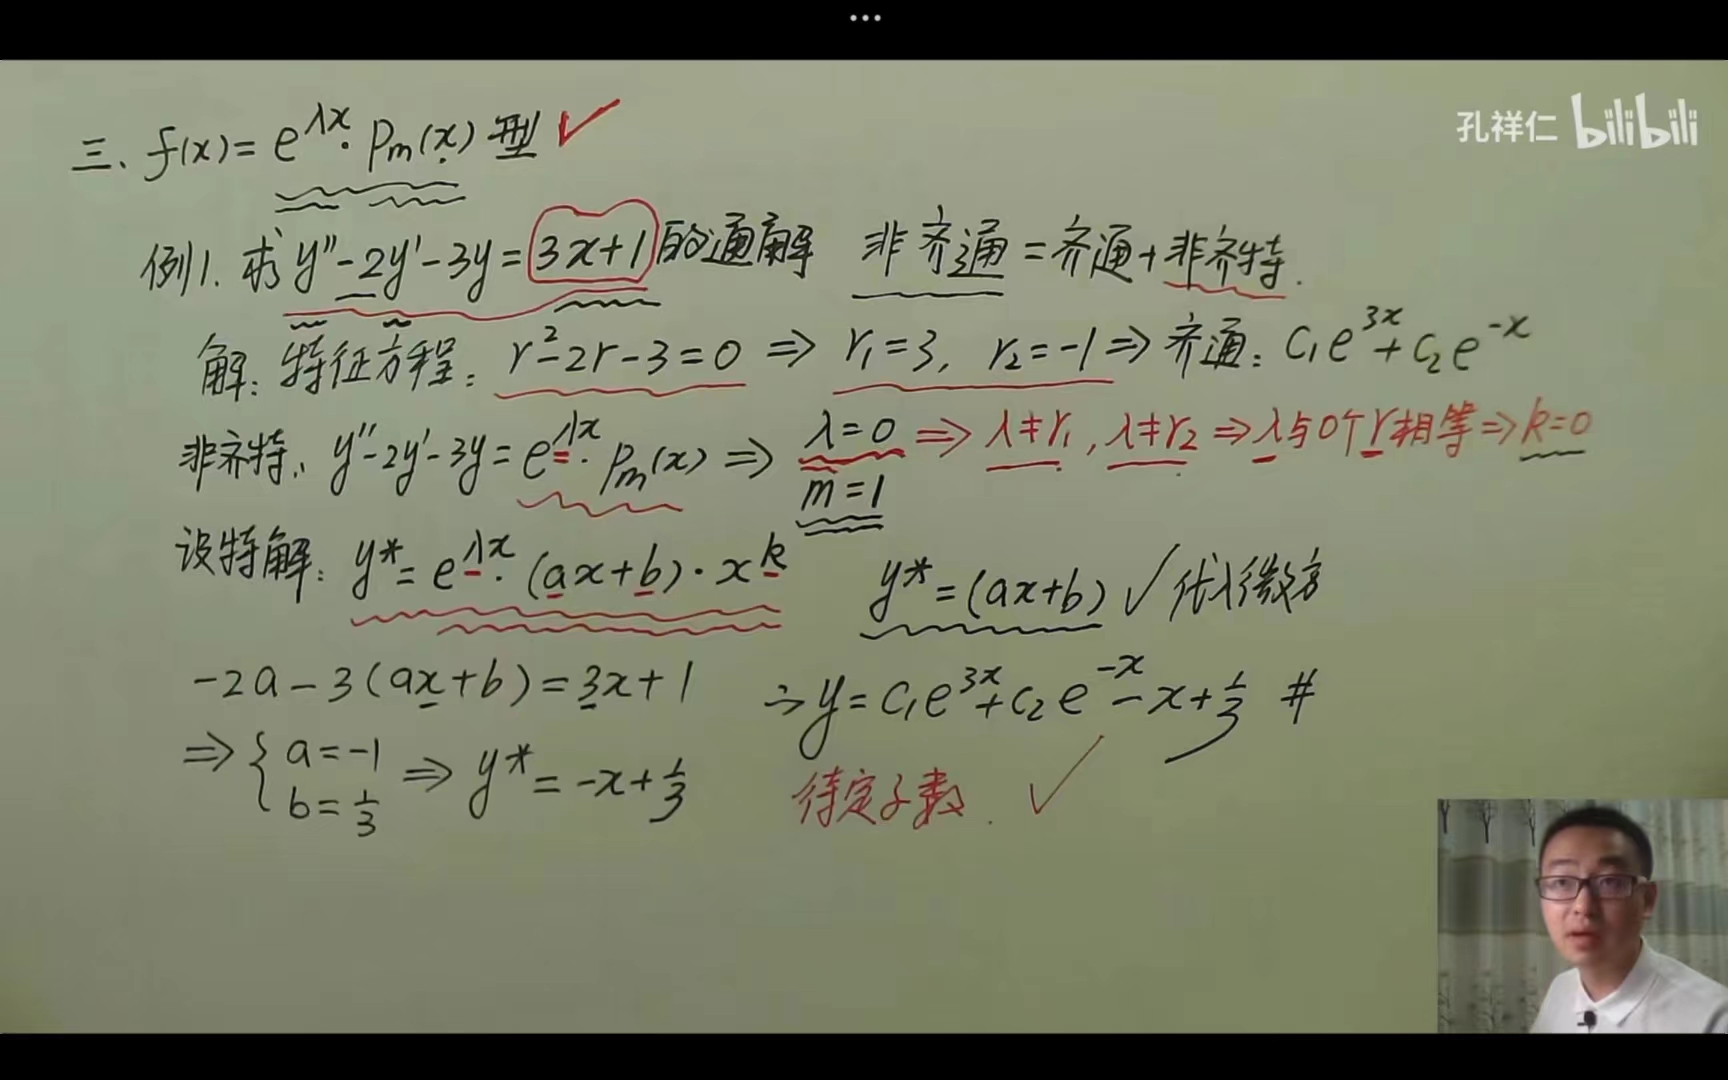 ...
孔祥仁 bilibili
三、f(x)=e^{λx}·Pm(x)型 ✓
例1. 求 y''-2y'-3y=3x+1 的通解 非齐通=齐通+非齐特.
解: 特征方程: r²-2r-3=0 ⇒ r₁=3, r₂=-1 ⇒ 齐通: C₁e^{3x}+C₂e^{-x}
非齐特: y''-2y'-3y=e^{λx}·Pm(x) ⇒ λ=0 ⇒ λ≠r₁, λ≠r₂ ⇒ λ与0个r相等 ⇒ k=0
m=1
设特解: y*=e^{λx}·(ax+b)·x^k y*=(ax+b) ✓ 代入微方
-2a-3(ax+b)=3x+1 ∴y=C₁e^{3x}+C₂e^{-x}-x+1/3 #
⇒ { a=-1 b=1/3 ⇒ y*=-x+1/3 待定子数. ✓